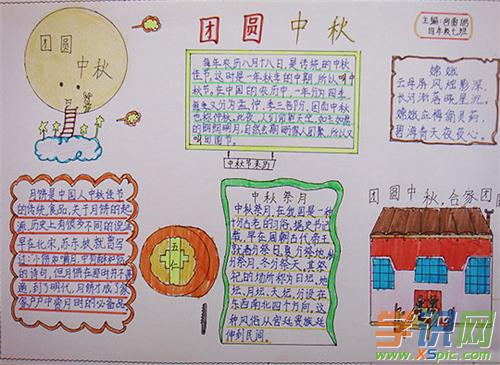 团圆中秋
团圆
中秋
主编
四年级七班
每年农历八月十八日,是传统的中秋
佳节。这时是一年秋季的中期,所以叫中
秋节。在中国的农历中,一年分为四季,
每季又分为孟、仲、季三个部分,因而中秋
也称仲秋。此夜,人们仰望天空,如玉如盘
的朗朗明月,自然会期盼家人团聚,所以又
叫团圆节。
中秋节来历
嫦娥
云母屏风烛影深,
长河渐落晓星沉。
嫦娥应悔偷灵药,
碧海青天夜夜心。
月饼是中国人中秋佳节
的传统食品,关于月饼的起
源,历史上有很多不同的说法
早在北宋,苏东坡就曾写
过:小饼如嚼月,
的诗句,但月饼在那时并不普
遍,到了明代,月饼才成了家
家户户中秋月时的必备品。
五
仁
中秋祭月
中秋祭月,在我国是一种
十分古老的习俗。据史书记
载,早在周朝古代帝王
就有春分祭日、夏分祭地、秋
分祭月、冬分祭天,其祭
祀的场所称为日坛、地
坛、月坛、天坛。分设在
东西南北四个方向,这
种风俗从宫廷贵族延
伸到民间。
团圆中秋,合家团圆
学识网
www.XSpic.com